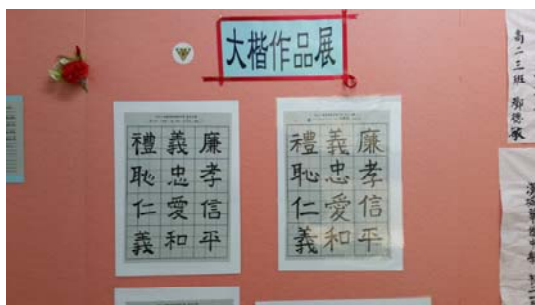 大楷作品展
廉孝信平
義忠愛和
禮恥仁義
廉孝信平
義忠愛和
禮恥仁義
高二三班